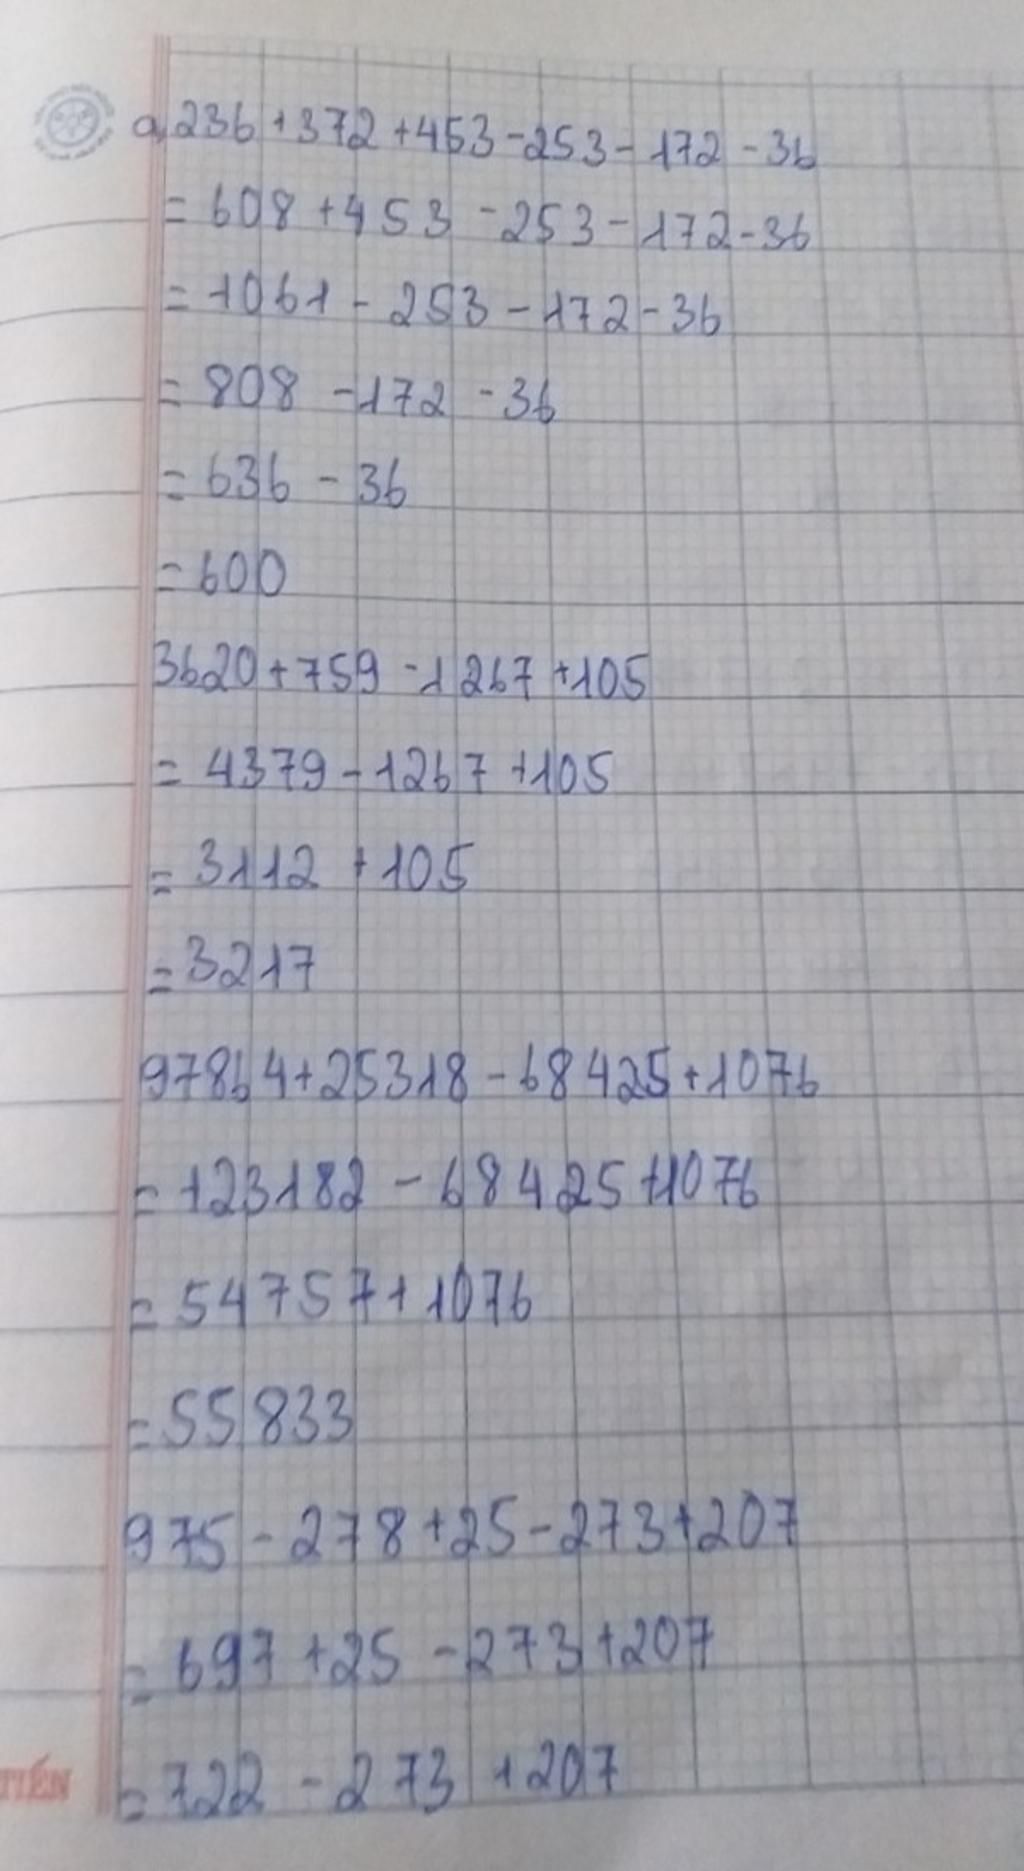 a, 236 + 372 + 453 - 253 - 172 - 36
= 608 + 453 - 253 - 172 - 36
= 1061 - 253 - 172 - 36
= 808 - 172 - 36
= 636 - 36
= 600
3620 + 759 - 1267 + 105
= 4379 - 1267 + 105
= 3112 + 105
= 3217
97864 + 25318 - 68425 + 1076
= 123182 - 68425 + 1076
= 54757 + 1076
= 55833
975 - 278 + 25 - 273 + 207
= 697 + 25 - 273 + 207
= 722 - 273 + 207
TIẾN